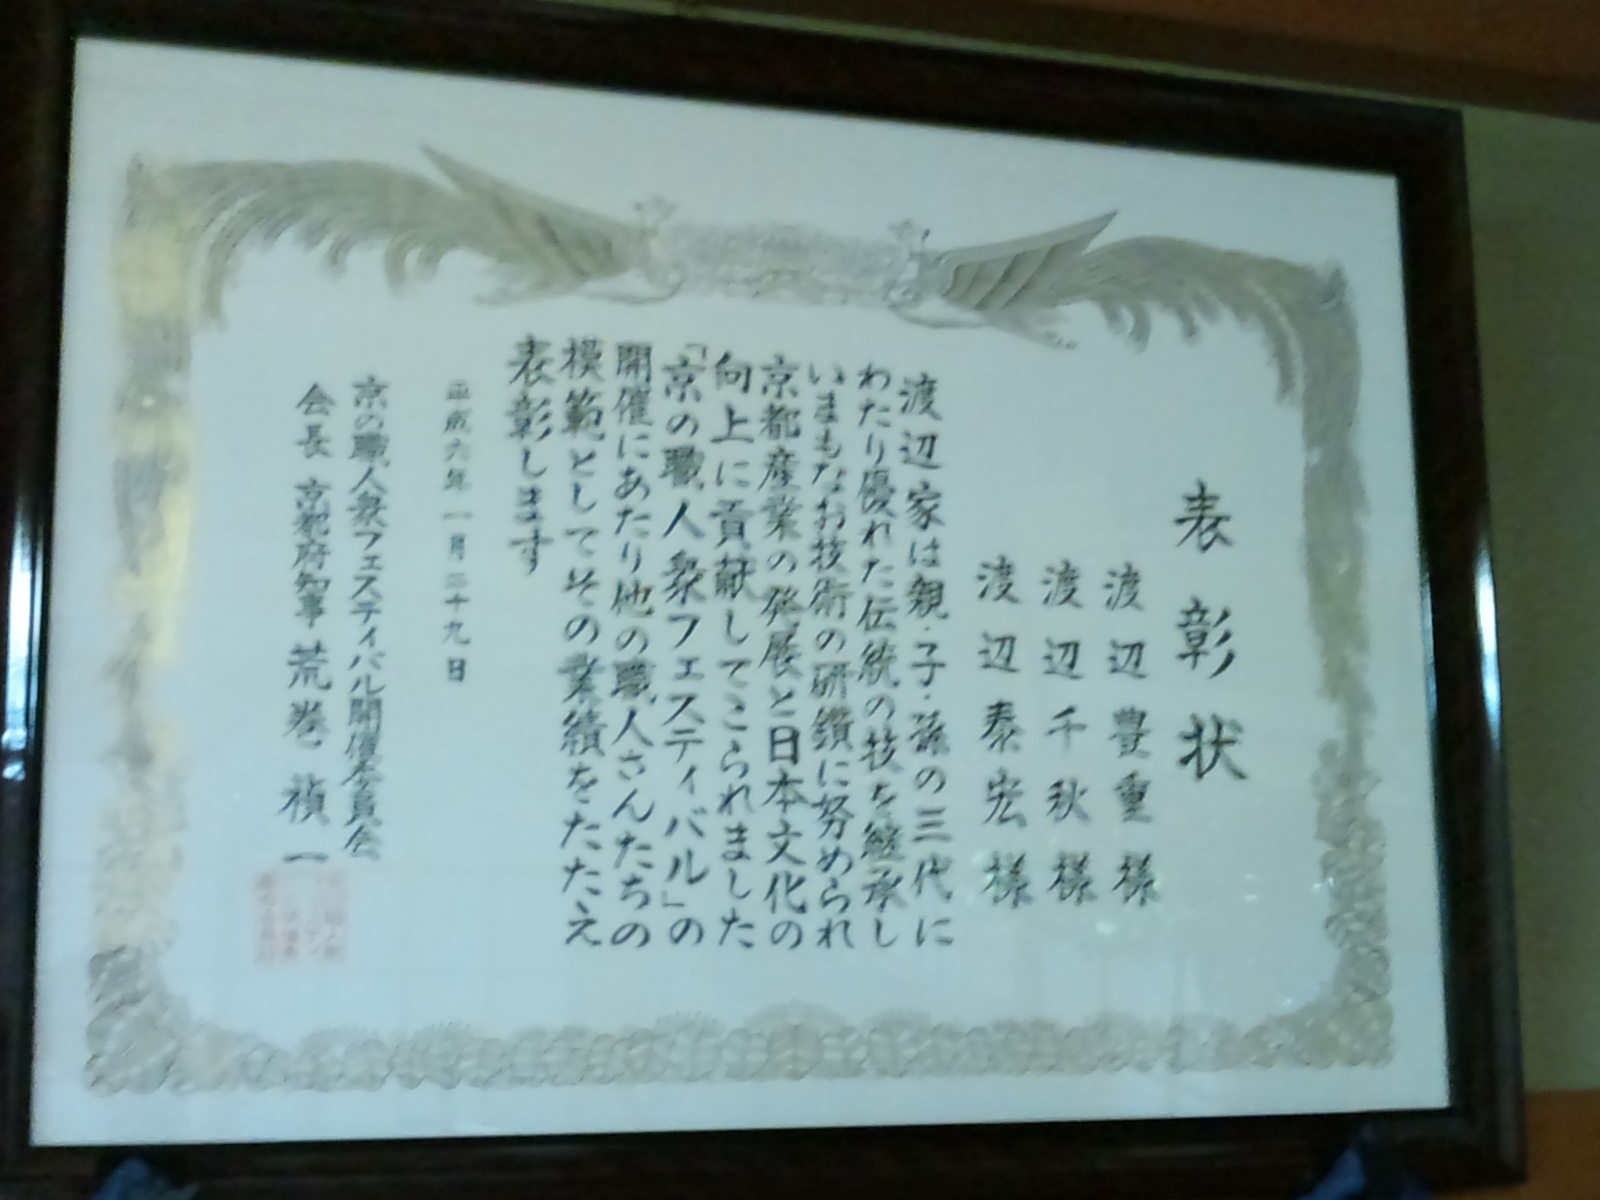 表彰状
渡辺豊重様
渡辺千秋様
渡辺泰宏様
渡辺家は親・子・孫の三代に
わたり優れた伝統の技を継承し
いまもなお技術の研鑽に努められ
京都産業の発展と日本文化の
向上に貢献してこられました
「京の職人衆フェスティバル」の
開催にあたり他の職人さんたちの
模範としてその業績をたたえ
表彰します
平成六年一月二十九日
京の職人衆フェスティバル開催委員会
会長 京都府知事 荒巻禎一